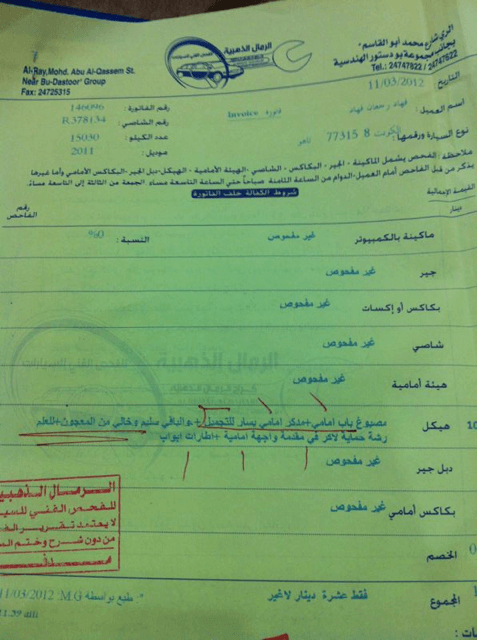 الري شارع محمد أبو القاسم
بجانب مجموعة بو دستور الهندسية
Tel.: 24747822 / 24747622
الرمال الذهبية
Al-Ray,Mohd. Abu Al-Qassem St.
Near Bu-Dastoor Group
Fax: 24725315
التاريخ : 11/03/2012
اسم العميل : فهاد
فاتورة Invoice
رقم الفاتورة : 146096
رقم الشاصي : R378134
نوع السيارة ورقمها : 77315 8 الكويت تاهو
عدد الكيلو : 15030
موديل : 2011
ملاحظة : الفحص يشمل الماكينة - الجير - البكاكس - الشاصي - الهيئة الأمامية - الهيكل - دبل الجير - البكاكس الأمامي وأما غيرها
يذكر من قبل الفاحص أمام العميل - الدوام من الساعة الثامنة صباحاً حتى الساعة التاسعة مساء. الجمعة من الثالثة إلى التاسعة مساءً.
شروط الكفالة خلف الفاتورة
القيمة الإجمالية
دينار
رقم الفاحص
ماكينة بالكمبيوتر غير مفحوص النسبة : %0
جير غير مفحوص
بكاكس أو إكسات غير مفحوص
شاصي غير مفحوص
هيئة أمامية غير مفحوص
الرمال الذهبية
10 هيكل مصبوغ باب امامي+مدكر امامي يسار للتجميل+.والباقي سليم وخالي من المعجون+للعلم
رشة حماية لاكر في مقدمة واجهة امامية +اطارات ابواب
دبل جير غير مفحوص
بكاكس أمامي غير مفحوص
الرمال الذهبي
للفحص الفني للسي
لا يعتمد تقرير الف
من دون شرح و ختم الس
0 الخصم
المجموع فقط عشرة دينار لاغير
طبع بواسطة M.G: 11/03/2012
11:39 am